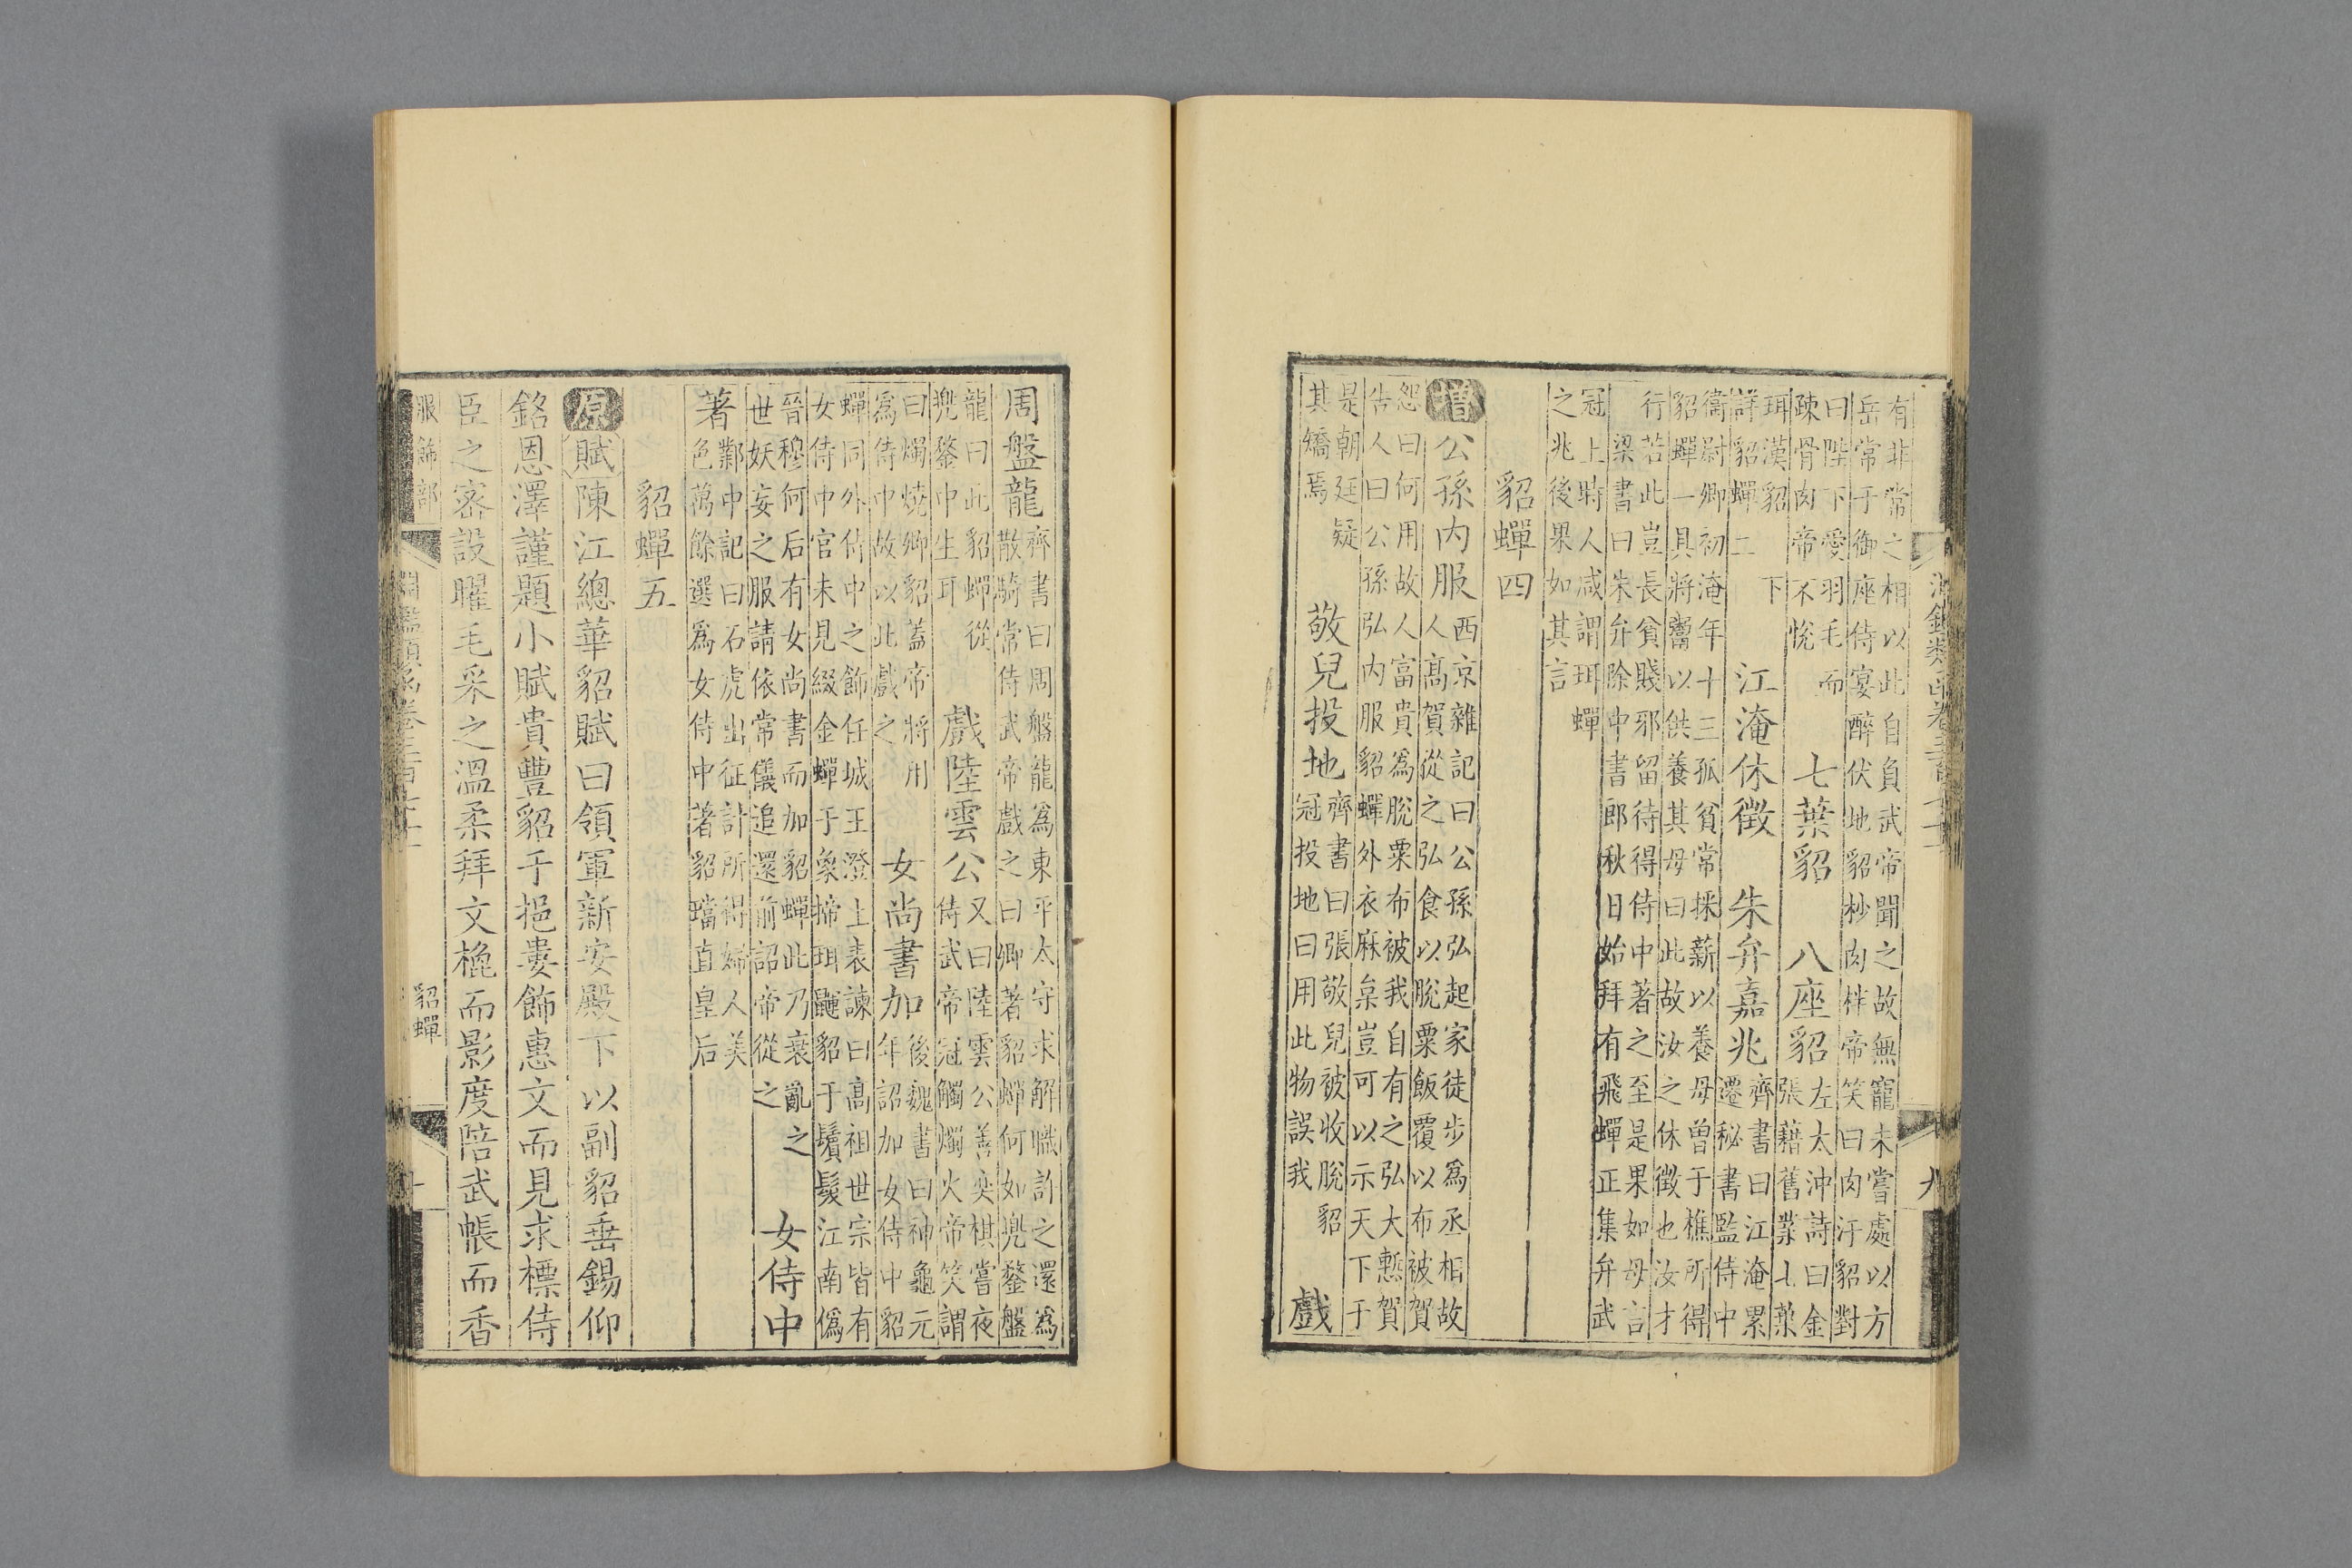 有非常之相以此自負武帝聞之故無寵未嘗處以方
岳常于御座侍宴醉伏地貂杪肉柈帝笑曰肉汙貂對
曰陛下愛羽毛而
疎骨肉帝不悅
七葉貂　八座貂
左太沖詩曰金
張藉舊業七葉
珥漢貂　下
詳貂蟬二
江淹休徵　朱弁嘉兆
齊書曰江淹累
遷秘書監侍中
衛尉卿初淹年十三孤貧常採薪以養母曾于樵所得
貂蟬一具將鬻以供養其母曰此故汝之休徵也汝才
行若此豈長貧賤邪留待得侍中著之至是果如母言
梁書曰朱弁除中書郎秋日始拜有飛蟬正集弁武
冠上時人咸謂珥蟬
之兆後果如其言
貂蟬四
增公孫内服
西京雜記曰公孫弘起家徒步爲丞相故
人高賀從之弘食以脫粟飯覆以布被賀
怨曰何用故人富貴爲脫粟布被我自有之弘大慙賀
告人曰公孫弘内服貂蟬外衣麻枲豈可以示天下于
是朝廷疑
其矯焉
敬兒投地
齊書曰張敬兒被收脫貂
冠投地曰用此物誤我
戲
周盤龍
齊書曰周盤龍爲東平太守求解職許之還爲
散騎常侍武帝戲之曰卿著貂蟬何如兜鍪盤
龍曰此貂蟬從
兜鍪中生耳
戲陸雲公
又曰陸雲公善奕棋嘗夜
侍武帝冠觸燭火帝笑謂
曰燭燒卿貂蓋帝將用
爲侍中故以此戲之
女尚書加
後魏書曰神龜元
年詔加女侍中貂
蟬同外侍中之飾任城王澄上表諫曰高祖世宗皆有
女侍中官未見綴金蟬于象揥珥鼲貂于鬢髮江南僞
晉穆何后有女尚書而加貂蟬此乃衰亂之
世妖妄之服請依常儀追還前詔帝從之
女侍中
著
鄴中記曰石虎出征計所得婦人美
色萬餘選爲女侍中著貂璫直皇后
貂蟬五
原賦陳江總華貂賦曰領軍新安殿下以副貂垂錫仰
銘恩澤謹題小賦貴豐貂于挹婁飾惠文而見求標侍
臣之密設曜毛采之溫柔拜文檐而影度陪武帳而香
服飾部
貂蟬